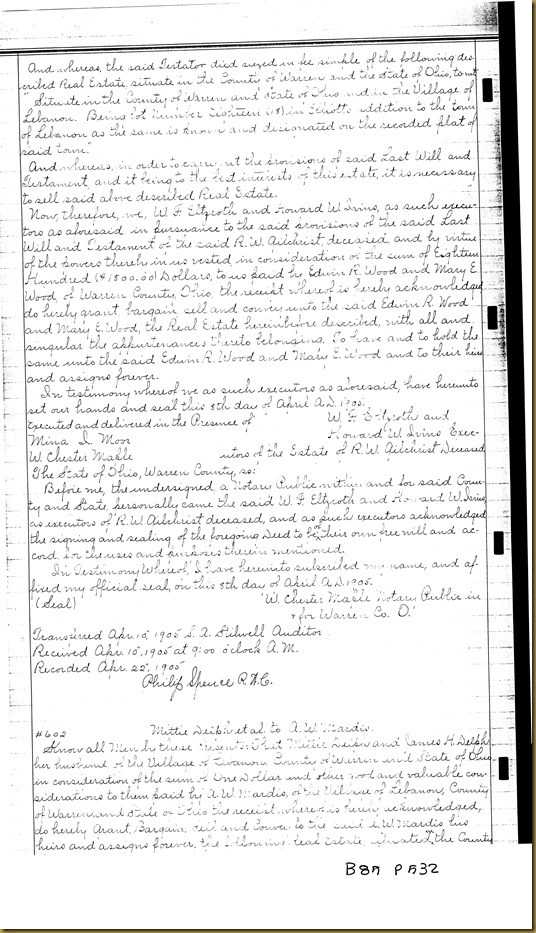 And whereas, the said Testator died seized in fee simple of the following des-
cribed Real Estate, situate in the County of Warren and the State of Ohio, to wit
"Situate in the County of Warren and State of Ohio and in the Village of
Lebanon. Being Lot Number Eighteen (18) in addition to the town
of Lebanon as the same is known and designated on the recorded plat of
said town."
And whereas, in order to carry out the provisions of said Last Will and
Testament, and it being to the best interests of this estate, it is necessary
to sell said above described Real Estate.
Now, therefore, we, W. F. Eltzroth and Howard W. Ivins, as such execu-
tors as aforesaid, in pursuance to the said provisions of the said Last
Will and Testament of the said R. W. Gilchrist, deceased, and by virtue
of the powers therein in us vested in consideration of the sum of Eighteen
Hundred ($1800.00) Dollars, to us paid by Edwin R. Wood and Mary E.
Wood, of Warren County, Ohio, the receipt whereof is hereby acknowledged
do hereby grant, bargain, sell and convey unto the said Edwin R. Wood
and Mary E. Wood, the Real Estate hereinbefore described, with all and
singular the appurtenances thereto belonging. To have and to hold the
same unto the said Edwin R. Wood and Mary E. Wood and to their heirs
and assigns forever.
In testimony whereof we as such executors as aforesaid, have hereunto
set our hands and seal this 8th day of April A.D. 1905.
Executed and delivered in the Presence of W. F. Eltzroth and
Mina I. Moor Howard W. Ivins Exec-
W. Chester Maple utors of the Estate of R. W. Gilchrist Deceased
The State of Ohio, Warren County, ss:
Before me, the undersigned, a Notary Public within and for said Coun-
ty and State, personally came the said W. F. Eltzroth and Howard W. Ivins,
as executors of R. W. Gilchrist deceased, and as such executors acknowledged
the signing and sealing of the foregoing Deed to be their own free will and ac-
cord, for the uses and purposes therein mentioned.
In Testimony Whereof, I have hereunto subscribed my name, and af-
fixed my official seal, on this 8th day of April A.D. 1905.
(Seal) W. Chester Maple Notary Public in
& for Warren Co. O.
Transferred Apr. 10, 1905 S. A. Stilwell Auditor
Received Apr. 10, 1905 at 9:00 o'clock A.M.
Recorded Apr. 22, 1905
Philip Spence R.W.C.
#602 Mittie Delph et al. to A. W. Mardis.
Know all Men by these Presents: That Mittie Delph and James H. Delph
her husband, of the Village of Lebanon, County of Warren and State of Ohio
in consideration of the sum of One Dollar and other good and valuable con-
siderations to them paid by A. W. Mardis, of the Village of Lebanon, County
of Warren and State of Ohio the receipt whereof is hereby acknowledged,
do hereby Grant, Bargain, Sell and Convey to the said A. W. Mardis his
heirs and assigns forever, the following Real Estate, situated, the County
B 85 P 532